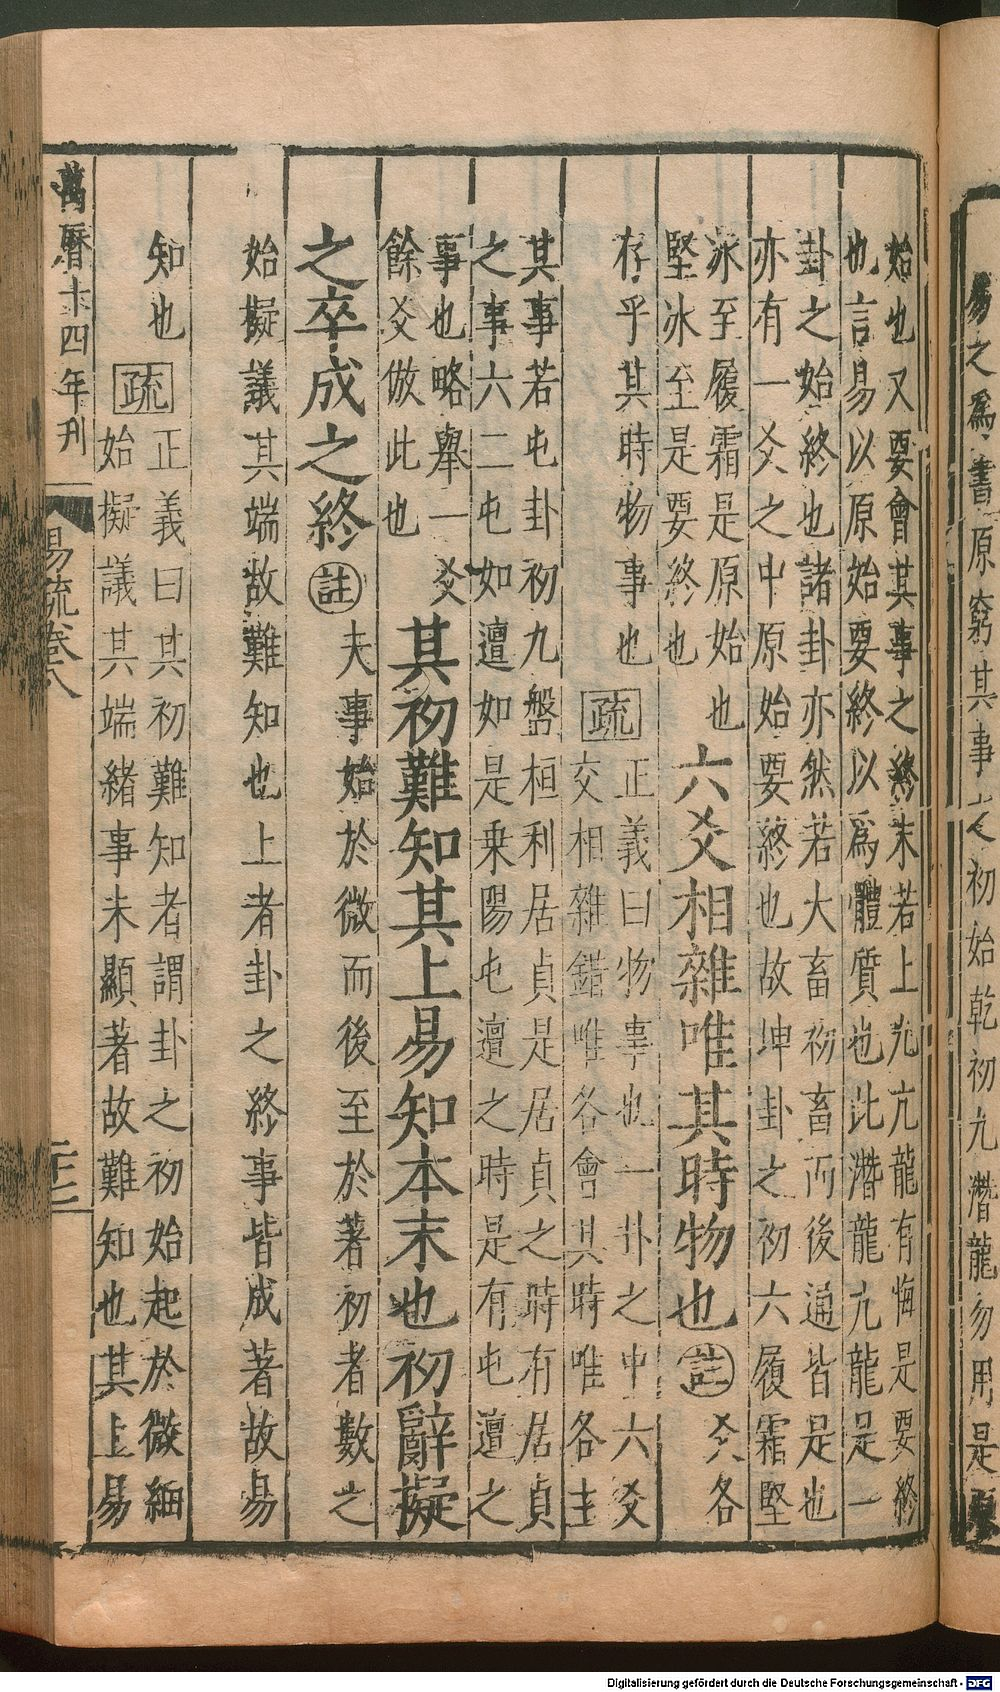 易之爲書原窮其事之初始乾初九潛龍勿用是原
始也又要會其事之終末若上九亢龍有悔是要終
也言易以原始要終以爲體質也此潛龍亢龍是一
卦之始終也諸卦亦然若大畜初畜而後通皆是也
亦有一爻之中原始要終也故坤卦之初六履霜堅
冰至履霜是原始也
堅冰至是要終也
六爻相雜唯其時物也
註
爻各
存乎其時物事也
疏
正義曰物事也一卦之中六爻
交相雜錯唯各會其時唯各主
其事若屯卦初九盤桓利居貞是居貞之時有居貞
之事六二屯如邅如是乘陽屯邅之時是有屯邅之
事也略舉一爻
餘爻倣此也
其初難知其上易知本末也初辭擬
之卒成之終
註
夫事始於微而後至於著初者數之
始擬議其端故難知也上者卦之終事皆成著故易
知也
疏
正義曰其初難知者謂卦之初始起於微細
始擬議其端緒事未顯著故難知也其上易
萬曆十四年刊
易疏卷八
二十二
Digitalisierung gefördert durch die Deutsche Forschungsgemeinschaft - DFG